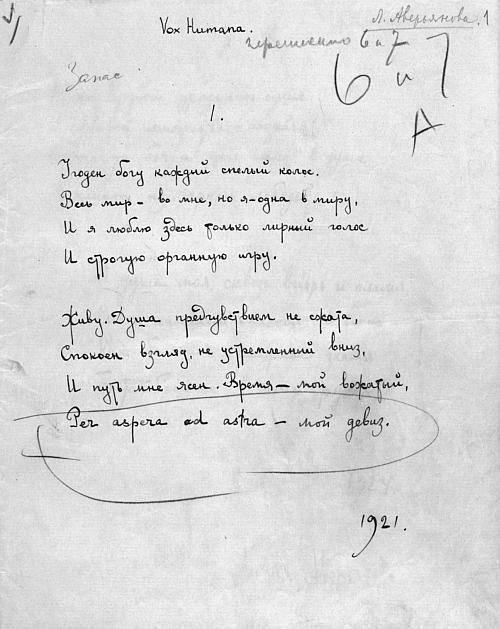 Л. Аверьянова. 1
Vox Humana.
6 и 7
Запас
6 и 7
А
1.
Угоден богу каждый спелый колос.
Весь мир – во мне, но я – одна в миру,
И я люблю здесь только мирный голос
И строгую органную игру.
Живу. Душа предчувствием не сжата,
Спокоен взгляд, не устремленный вниз,
И путь мне ясен. Время – мой вожатый,
Per aspera ad astra – мой девиз.
1921.